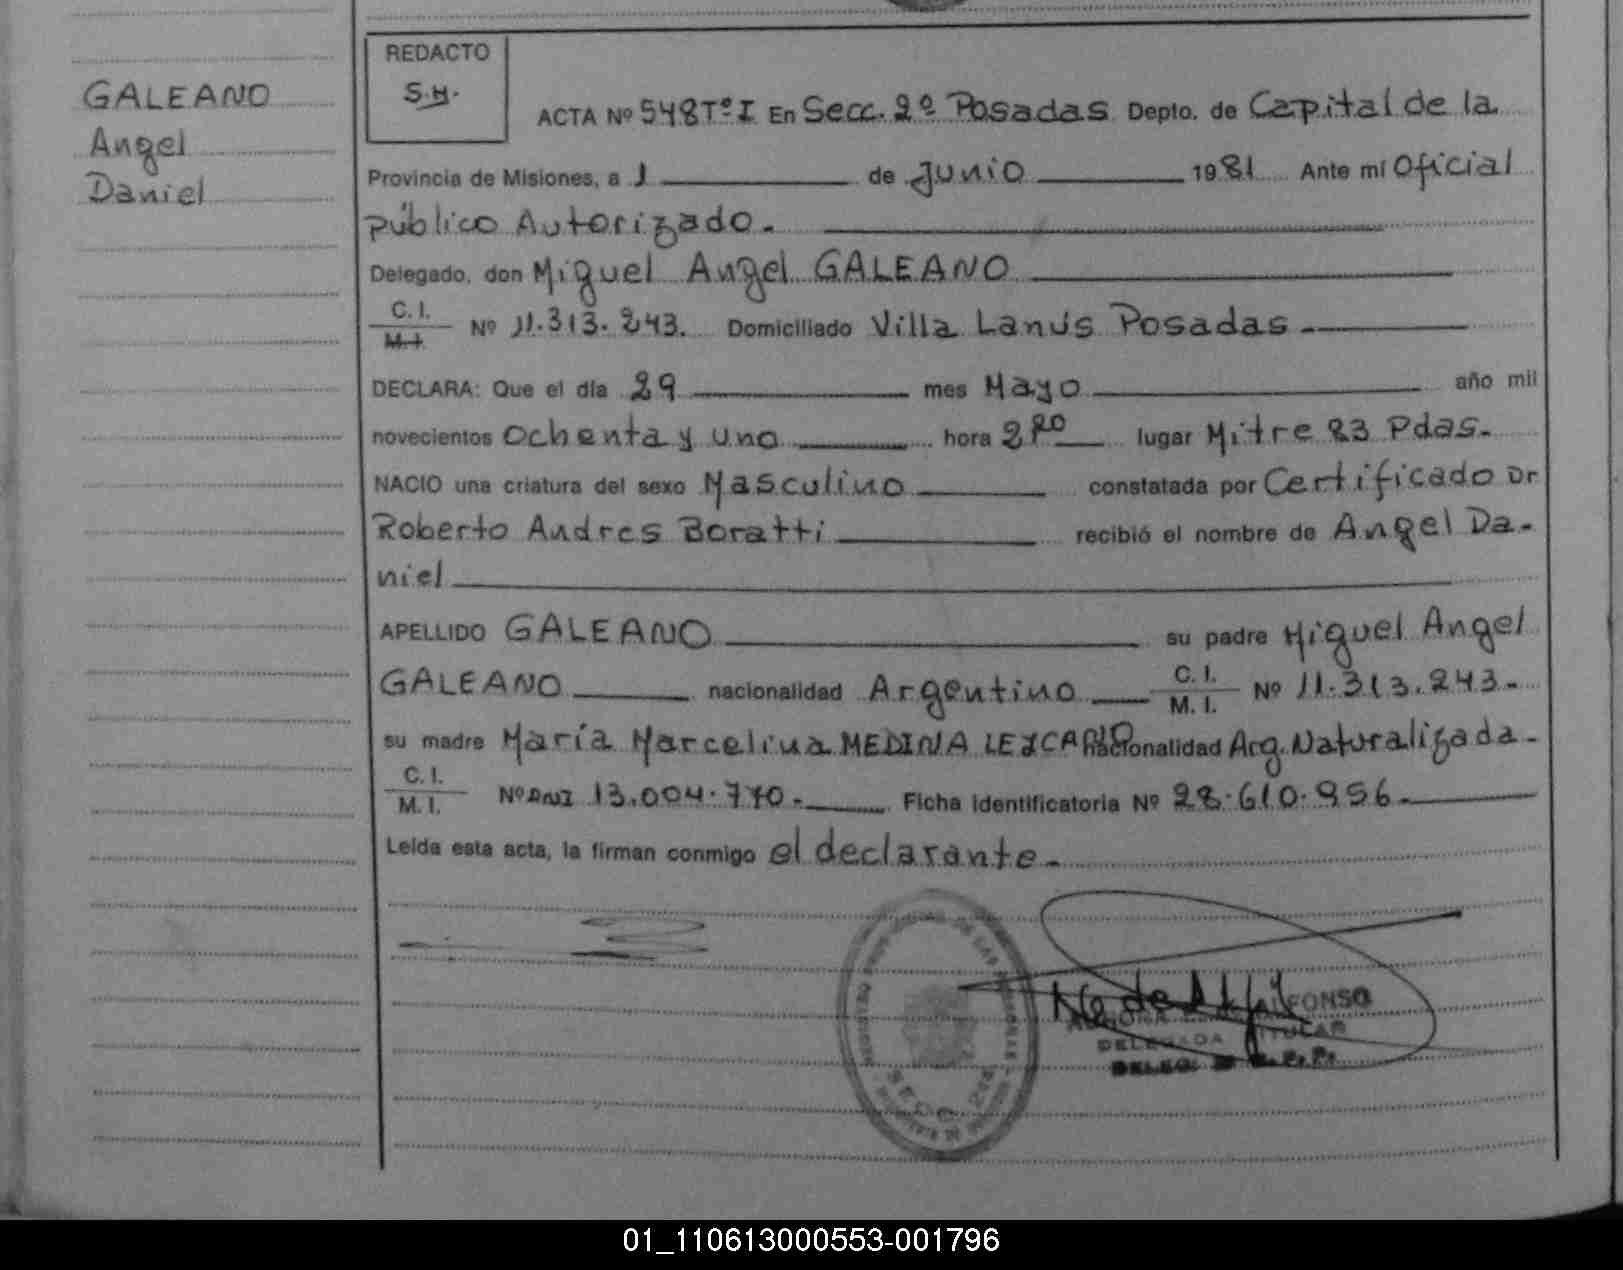 GALEANO
Angel
Daniel
REDACTO
S.H.
ACTA Nº 548 Tº I En Secc. 2º Posadas Depto. de Capital de la
Provincia de Misiones, a 1 de Junio 1981 Ante mí Oficial
Público Autorizado.
Delegado, don Miguel Angel GALEANO
C. I.
M. I. Nº 11.313.243. Domiciliado Villa Lanús Posadas
DECLARA: Que el día 29 mes Mayo año mil
novecientos Ochenta y uno hora 2 lugar Mitre 23 Pdas.
NACIO una criatura del sexo Masculino constatada por Certificado Dr
Roberto Andres Boratti recibió el nombre de Angel Da-
niel
APELLIDO GALEANO su padre Miguel Angel
GALEANO nacionalidad Argentino C. I. M. I. Nº 11.313.243.
su madre María Marcelina MEDINA nacionalidad Arg. Naturalizada
C. I.
M. I. Nº DNI 13.004.770. Ficha Identificatoria Nº 28.610.956.
Leída esta acta, la firman conmigo el declarante.
SECC. 2da
DELEGADA TITULAR
01_110613000553-001796